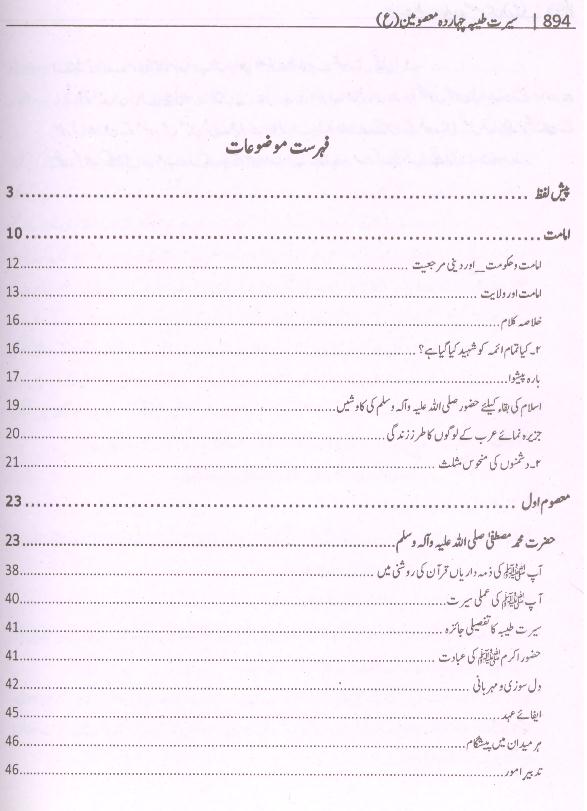 894 | سیرت طیبہ چہاردہ معصومین (ع)
فہرست موضوعات
پیش لفظ ........ 3
امامت ........ 10
امامت و حکومت_ اور دینی مرجعیت ........ 12
امامت اور ولایت ........ 13
خلاصہ کلام ........ 16
۲۔ کیا تمام ائمہ کو شہید کیا گیا ہے؟ ........ 16
بارہ پیشوا ........ 17
اسلام کی بقاء کیلئے حضور صلی اللہ علیہ وآلہ وسلم کی کاوشیں ........ 19
جزیرہ نمائے عرب کے لوگوں کا طرز زندگی ........ 20
۲۔ دشمنوں کی منحوس مثلث ........ 21
معصوم اول ........ 23
حضرت محمد مصطفیٰ صلی اللہ علیہ وآلہ وسلم ........ 23
آپ ﷺ کی ذمہ داریاں قرآن کی روشنی میں ........ 38
آپ ﷺ کی عملی سیرت ........ 40
سیرت طیبہ کا تفصیلی جائزہ ........ 41
حضور اکرم ﷺ کی عبادت ........ 41
دل سوزی و مہربانی ........ 42
ایفائے عہد ........ 45
ہر میدان میں پیشگام ........ 46
تدبیر امور ........ 46